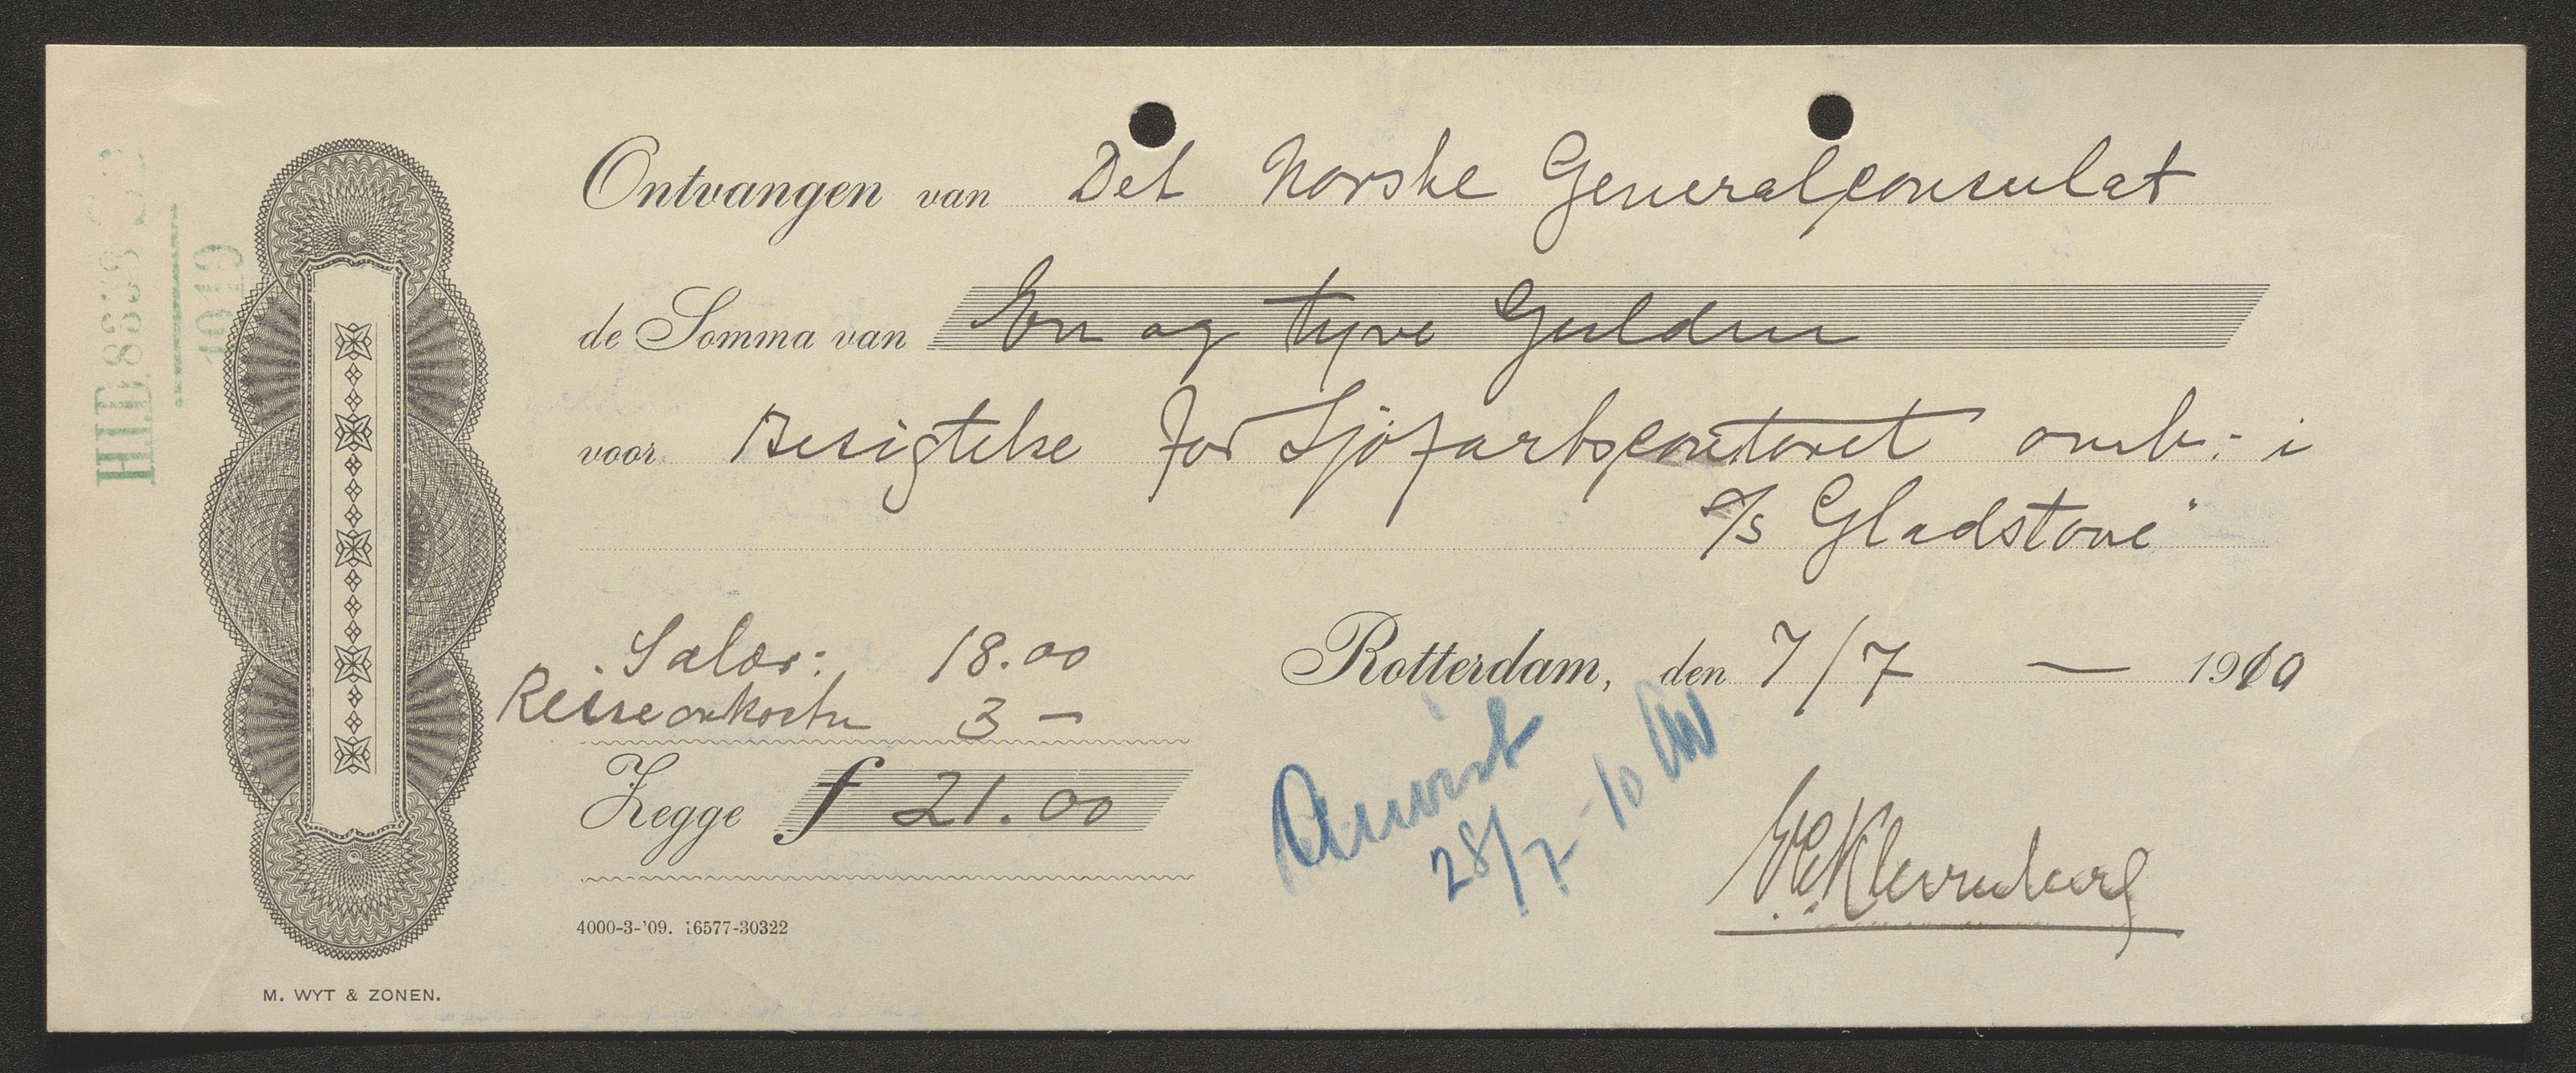 Ontvangen van Det Norske Generalconsulat
de Somma van En og tyve Gulden
voor Besigtelse for Sjöfartscontoret omb: i
s/s Gladstone"
Salær: 18.00
Reiseomkostn 3 —
Rotterdam, den 7/7 — 1910
Zegge f 21.00
Anvist
28/7-10
4000-3-'09. 16577-30322
M. WYT & ZONEN.